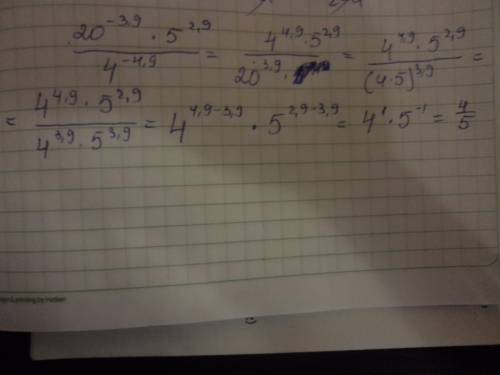 20^{-3,9} · 5^{2,9} / 4^{-4,9} = 4^{4,9} · 5^{2,9} / 20^{3,9} · = 4^{4,9} · 5^{2,9} / (4·5)^{3,9} =
= 4^{4,9} · 5^{2,9} / 4^{3,9} · 5^{3,9} = 4^{4,9-3,9} · 5^{2,9-3,9} = 4^1 · 5^{-1} = 4/5